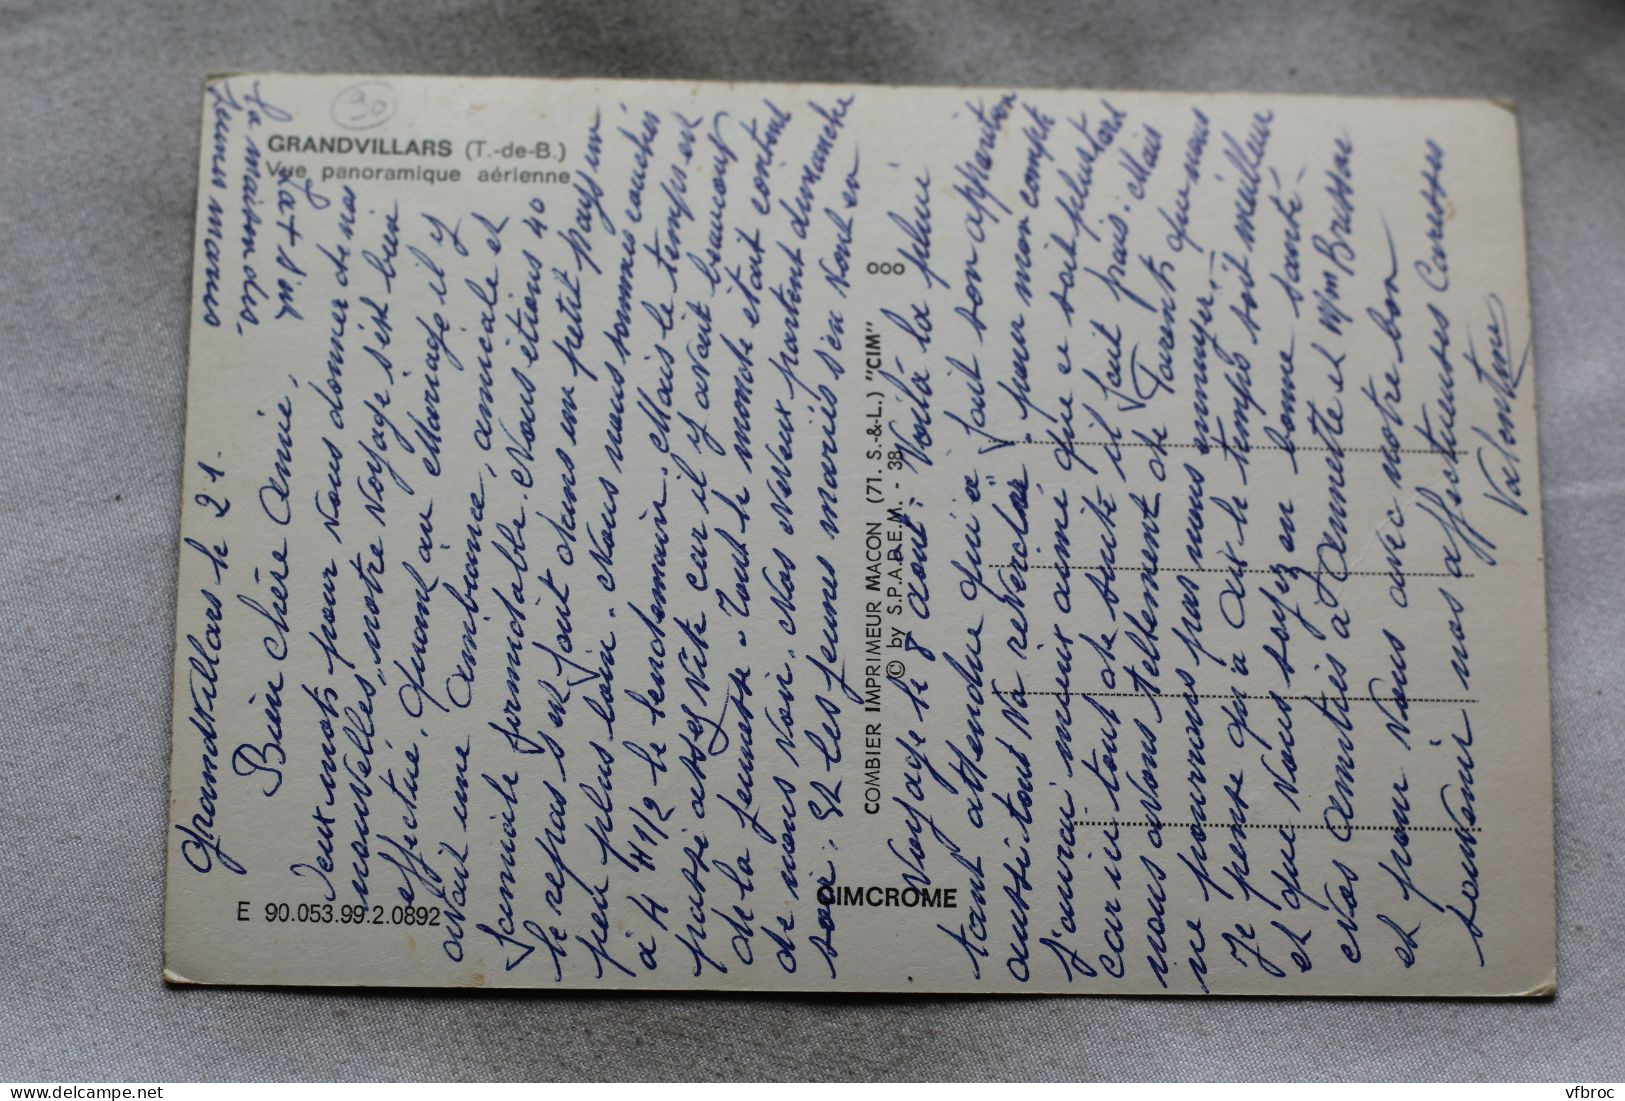 GRANDVILLARS (T.-de-B.)
Vue panoramique aérienne
90
E 90.053.99.2.0892
CIMCROME
COMBIER IMPRIMEUR MACON (71. S.-&-L.) "CIM"
© by S.P.A.D.E.M. - 38
ooo
La maison des
jeunes mariés
Grandvillars le 21.
Bien chère Amie,
Deux mots pour vous donner de nos
nouvelles, notre voyage s'est bien
effectué, quand au Mariage il y
avait une ambiance, amicale et
familiale formidable. Nous étions 40
le repas s'est fait dans un petit pays un
peu plus loin. Nous nous sommes couchés
à 4 h 1/2 le lendemain. Mais le temps est
passé assez vite car il y avait beaucoup
de la jeunesse. Tout le monde était content
de nous voir. Nos neveux partent dimanche
soir. Et les jeunes mariés s'en vont en
voyage le 8 août. Voilà la pluie
tant attendue qui a fait son apparition
aussitôt va reverdir. pour mon compte
j'aurai mieux aimé que ce soit plus tard
car ici tout de suite il fait frais. Mais
nous avons tellement de Parents que nous
ne pourrons pas nous ennuyer.
Je pense qu'à Aix le temps soit meilleur
et que vous soyez en bonne santé.
Nos Amitiés à Annette et Mme Brissac
et pour vous avec notre bon
souvenir nos affectueuses Caresses
Valentine